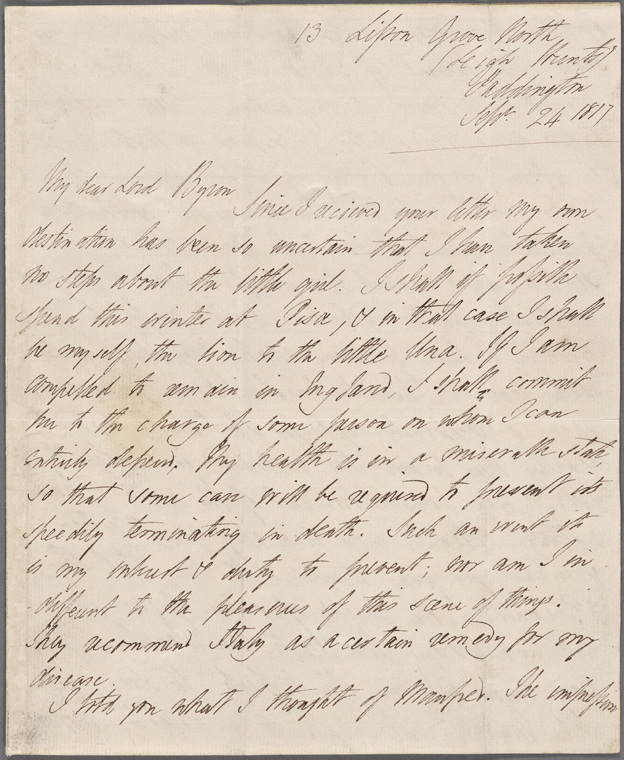 13 Lisson Grove North
(Leigh Hunts)
Paddington
Sepr. 24 1817
My dear Lord Byron
Since I recieved your letter my own
destination has been so uncertain that I have taken
no steps about the little girl. I shall if possible
spend this winter at Pisa, & in that case I shall
be myself, the lion to the little Una. If I am
compelled to remain in England, I shall commit
her to the charge of some person on whom I can
entirely depend. My health is in a miserable state,
so that some care will be required to prevent its
speedily terminating in death. Such an event it
is my interest & duty to prevent; nor am I in
different to the pleasures of this scene of things.
They recommend Italy as a certain remedy for my
disease.
I told you what I thought of Manfred. The impression